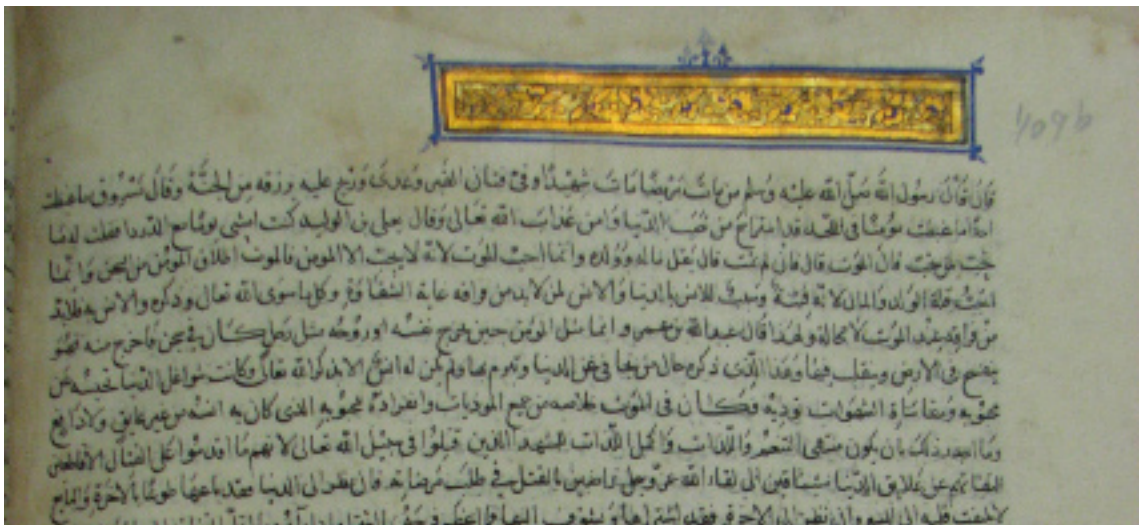 1096
قال قال رسول الله صلى الله عليه وسلم من مات مريضا مات شهيدا ووقي فتان القبر وغدي وريح عليه برزقه من الجنة وقال مسروق ما غبطت
احدا ما غبطت مؤمنا في اللحد قد استراح من نصب الدنيا وامن عذاب الله تعالى وقال يعلى بن الوليد كنت امشي يوما مع ابي الدرداء فقلت له ما
تحب لمن تحب قال الموت قال فان لم يمت قال يقل ماله وولده وانما احب الموت لانه لا يحبه الا المؤمن فالموت اطلاق المؤمن من السجن وانما
احب قلة الولد والمال لانه فتنة وسبب للانس بالدنيا والانس لمن لابد من فراقه غاية الشقاوة وكل ما سوى الله تعالى وذكره والانس به فلابد
من فراقه عند الموت لا محالة ولهذا قال عبد الله بن عمرو انما مثل المؤمن حين يخرج نفسه او روحه مثل رجل كان في سجن فاخرج منه فهو
يتفسح في الارض ويتقلب فيها وهذا الذي ذكره حال من تجافى عن الدنيا وتبرم بها ولم يكن له انس الا بذكر الله تعالى وكانت شواغل الدنيا تحبسه عن
محبوبه ومقاساة الشهوات تؤذيه فكان في الموت خلاصه من جميع الموذيات وانفراده بمحبوبه الذي كان به انسه من غير عايق ولا دافع
وما اجدر ذلك بان يكون منتهى النعيم واللذات واكمل اللذات للشهداء الذين قتلوا في سبيل الله تعالى لانهم ما اقدموا على القتال الا قاطعين
التفاتهم عن علايق الدنيا مشتاقين الى لقاء الله عز وجل راضين بالقتل في طلب مرضاته فان نظر الى الدنيا فقد باعها طوعا بالاخرة والبايع
لا يلتفت قلبه الى المبيع وان نظر الى الاخرة فقد اشتراها وتشوف اليها فما اعظم فرحه